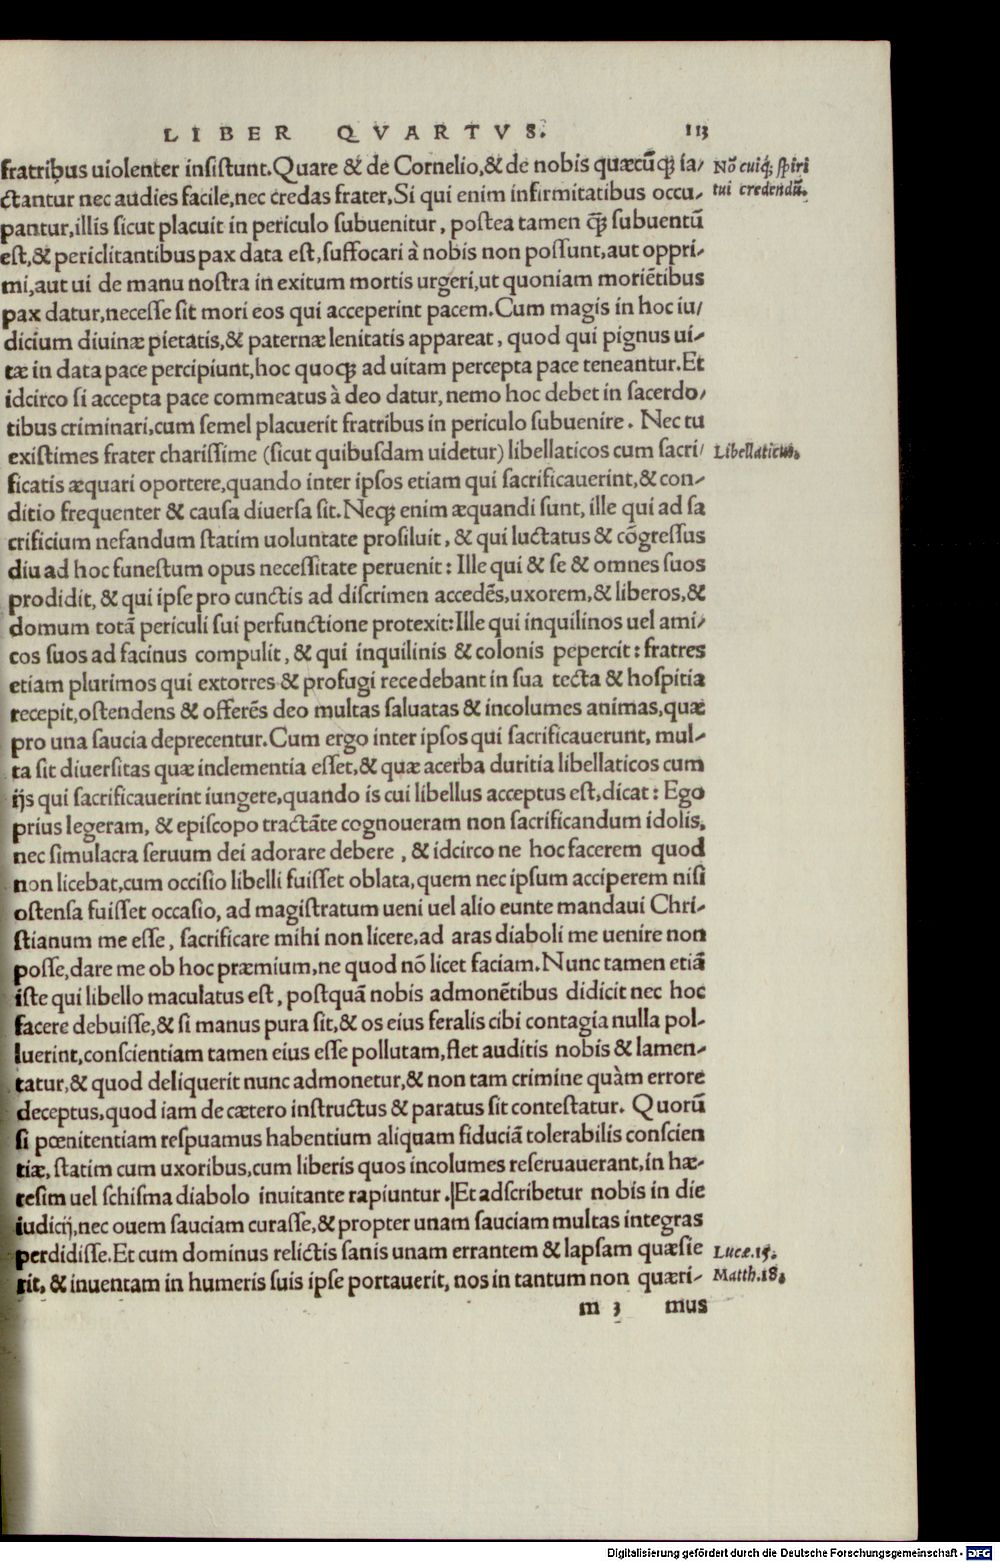 LIBER QVARTVS. 113
fratribus uiolenter insistunt. Quare & de Cornelio, & de nobis quæcũq; ia/ Nõ cuiq; spiri
ctantur nec audies facile, nec credas frater. Si qui enim infirmitatibus occu- tui credendũ.
pantur, illis sicut placuit in periculo subuenitur, postea tamen q̃ subuentũ
est, & periclitantibus pax data est, suffocari à nobis non possunt, aut oppri-
mi, aut ui de manu nostra in exitum mortis urgeri, ut quoniam moriẽtibus
pax datur, necesse sit mori eos qui acceperint pacem. Cum magis in hoc iu/
dicium diuinæ pietatis, & paternæ lenitatis appareat, quod qui pignus ui-
tæ in data pace percipiunt, hoc quoq; ad uitam percepta pace teneantur. Et
idcirco si accepta pace commeatus à deo datur, nemo hoc debet in sacerdo/
tibus criminari, cum semel placuerit fratribus in periculo subuenire. Nec tu
existimes frater charissime (sicut quibusdam uidetur) libellaticos cum sacri/ Libellaticus.
ficatis æquari oportere, quando inter ipsos etiam qui sacrificauerint, & con-
ditio frequenter & causa diuersa sit. Neq; enim æquandi sunt, ille qui ad sa
crificium nefandum statim uoluntate prosiluit, & qui luctatus & cõgressus
diu ad hoc funestum opus necessitate peruenit: Ille qui & se & omnes suos
prodidit, & qui ipse pro cunctis ad discrimen accedẽs, uxorem, & liberos, &
domum totã periculi sui perfunctione protexit: Ille qui inquilinos uel ami/
cos suos ad facinus compulit, & qui inquilinis & colonis pepercit: fratres
etiam plurimos qui extorres & profugi recedebant in sua tecta & hospitia
recepit, ostendens & offerẽs deo multas saluatas & incolumes animas, quæ
pro una saucia deprecentur. Cum ergo inter ipsos qui sacrificauerunt, mul-
ta sit diuersitas quæ inclementia esset, & quæ acerba duritia libellaticos cum
ijs qui sacrificauerint iungere, quando is cui libellus acceptus est, dicat: Ego
prius legeram, & episcopo tractãte cognoueram non sacrificandum idolis,
nec simulacra seruum dei adorare debere, & idcirco ne hoc facerem quod
non licebat, cum occisio libelli fuisset oblata, quem nec ipsum acciperem nisi
ostensa fuisset occasio, ad magistratum ueni uel alio eunte mandaui Chri-
stianum me esse, sacrificare mihi non licere, ad aras diaboli me uenire non
posse, dare me ob hoc præmium, ne quod nõ licet faciam. Nunc tamen etiã
iste qui libello maculatus est, postquã nobis admonẽtibus didicit nec hoc
facere debuisse, & si manus pura sit, & os eius feralis cibi contagia nulla pol-
luerint, conscientiam tamen eius esse pollutam, flet auditis nobis & lamen-
tatur, & quod deliquerit nunc admonetur, & non tam crimine quàm errore
deceptus, quod iam de cætero instructus & paratus sit contestatur. Quorũ
si pœnitentiam respuamus habentium aliquam fiduciã tolerabilis conscien
tiæ, statim cum uxoribus, cum liberis quos incolumes reseruauerant, in hæ-
resim uel schisma diabolo inuitante rapiuntur. | Et adscribetur nobis in die
iudicij, nec ouem sauciam curasse, & propter unam sauciam multas integras
perdidisse. Et cum dominus relictis sanis unam errantem & lapsam quæsie Lucæ. 15.
rit, & inuentam in humeris suis ipse portauerit, nos in tantum non quæri- Matth. 18.
m 3 mus
Digitalisierung gefördert durch die Deutsche Forschungsgemeinschaft - DFG